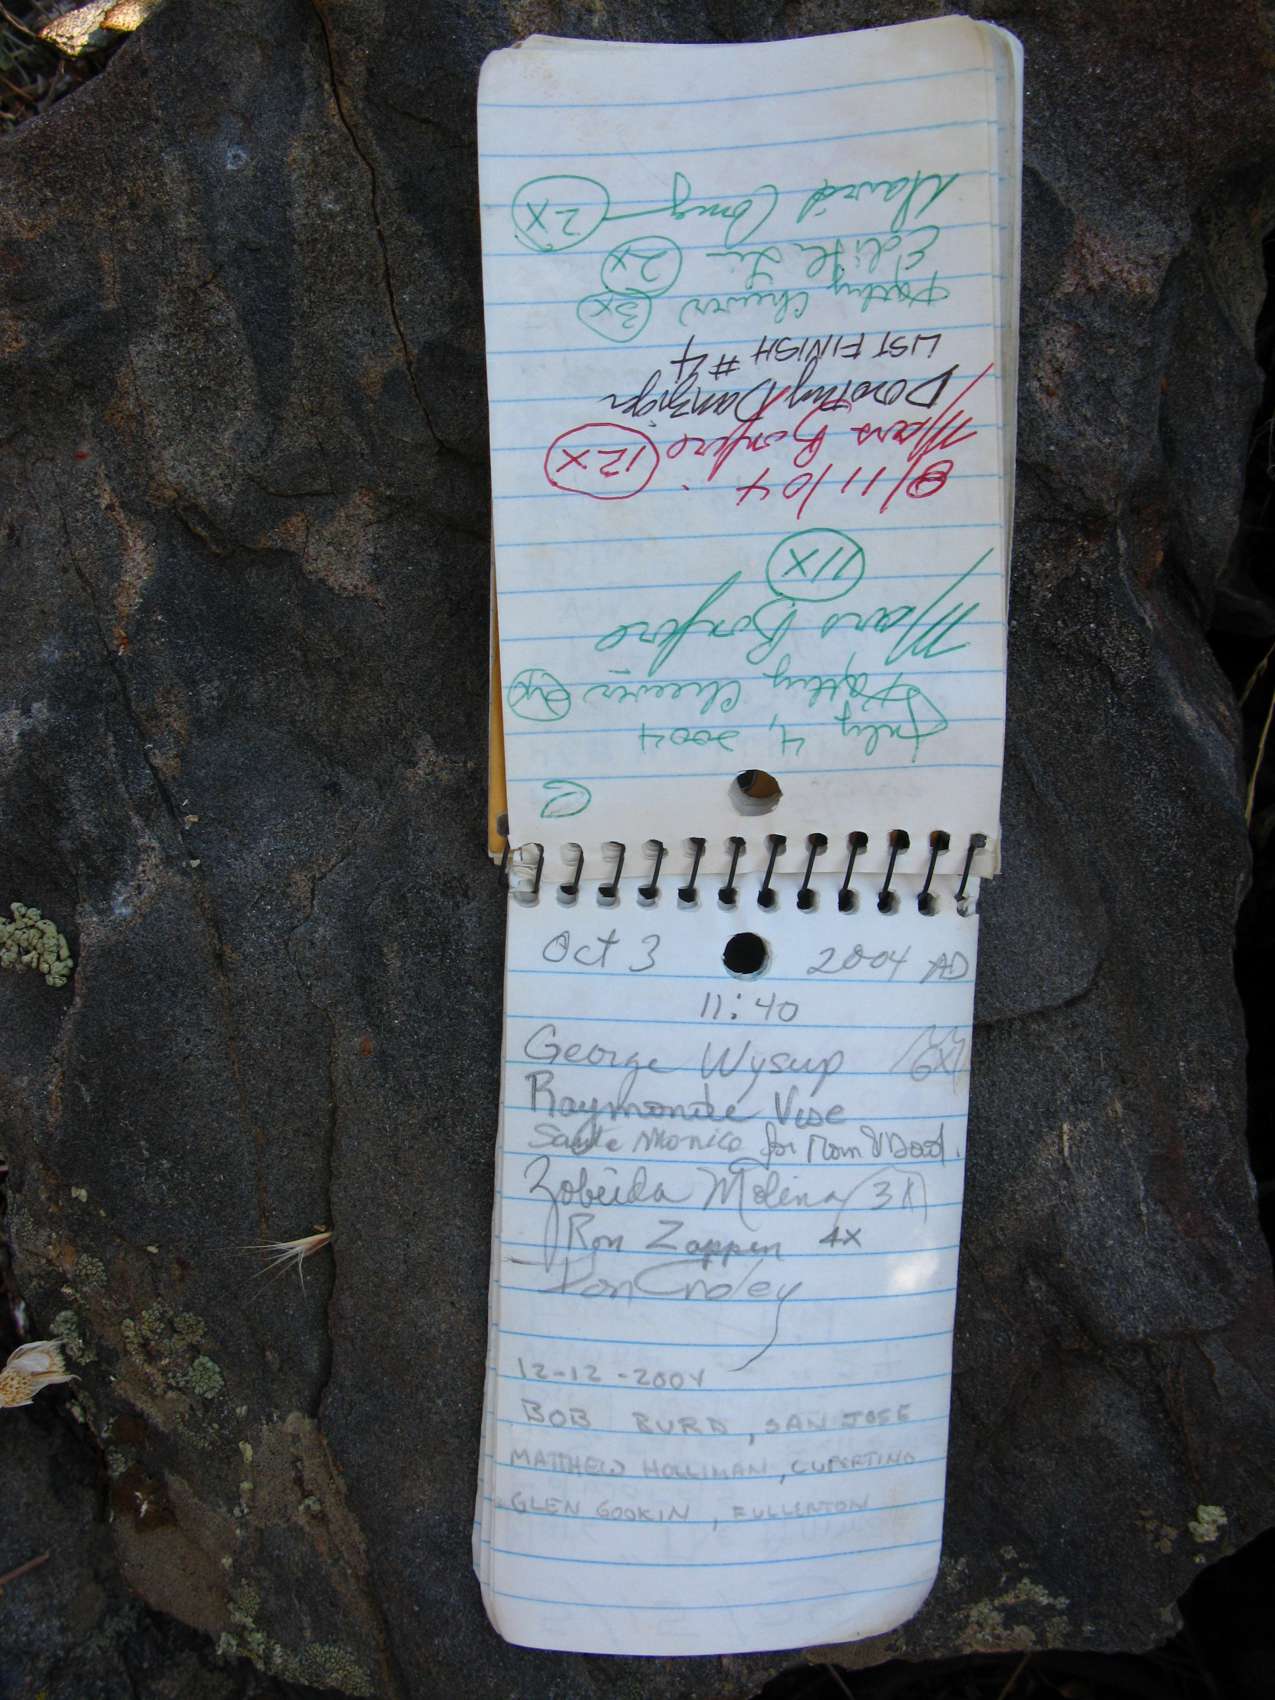 July 4, 2004
Kathy Cheever
Mars Bonfire
11X
8/11/04
Mars Bonfire 12X
Dorothy Danziger
LIST FINISH #4
Kathy Cheever 3X
Edith Liu 2X
David Comey 2X
Oct 3 2004 AD
11:40
George Wysup 6X
Raymonde Vise
Monica for Mom & Dad.
Zobeida Molina 3X
Ron Zappen 4X
12-12-2004
BOB BURD, SAN JOSE
MATTHEW HOLLIMAN, CUPERTINO
GLEN GOOKIN, FULLERTON